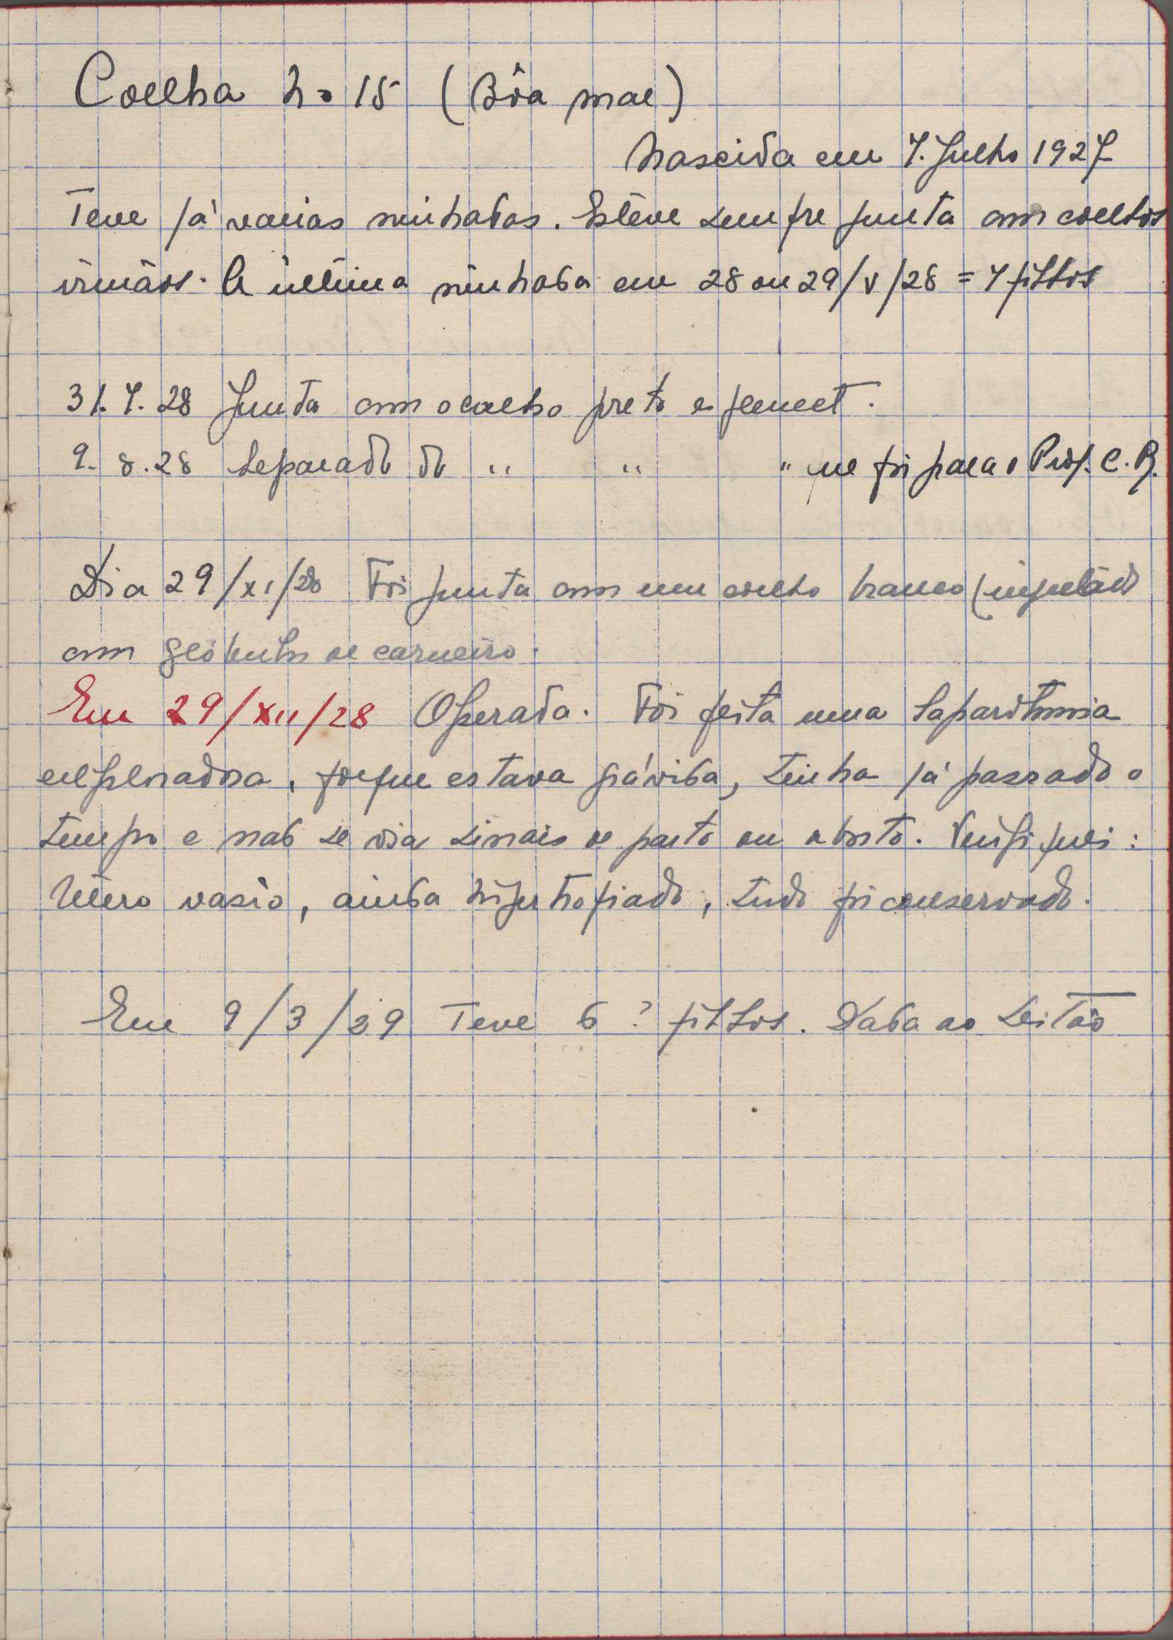 Coelha no 15 (Bôa mae)
Nascida em 7. Julho 1927
Teve já varias ninhadas. Estêve sempre junta com coelhos
irmãos. A última ninhada em 28 ou 29/V/28 = 7 filhos
31.7.28 Junta com o coelho preto
9.8.28 Separado do " " " que foi para o Prof. C. B.
Dia 29/XI/28 Foi junta com um coelho branco (injectado
com globulos de carneiro.
Em 29/XII/28 Operada. Foi feita uma laparotomia
exploradora, porque estava grávida, tinha já passado o
tempo e nao se via sinais de parto ou aborto. Verifiquei:
Utero vasio, ainda hipertrofiado, tudo foi conservado.
Em 9/3/29 Teve 6 ? filhos. Dada ao Leitão